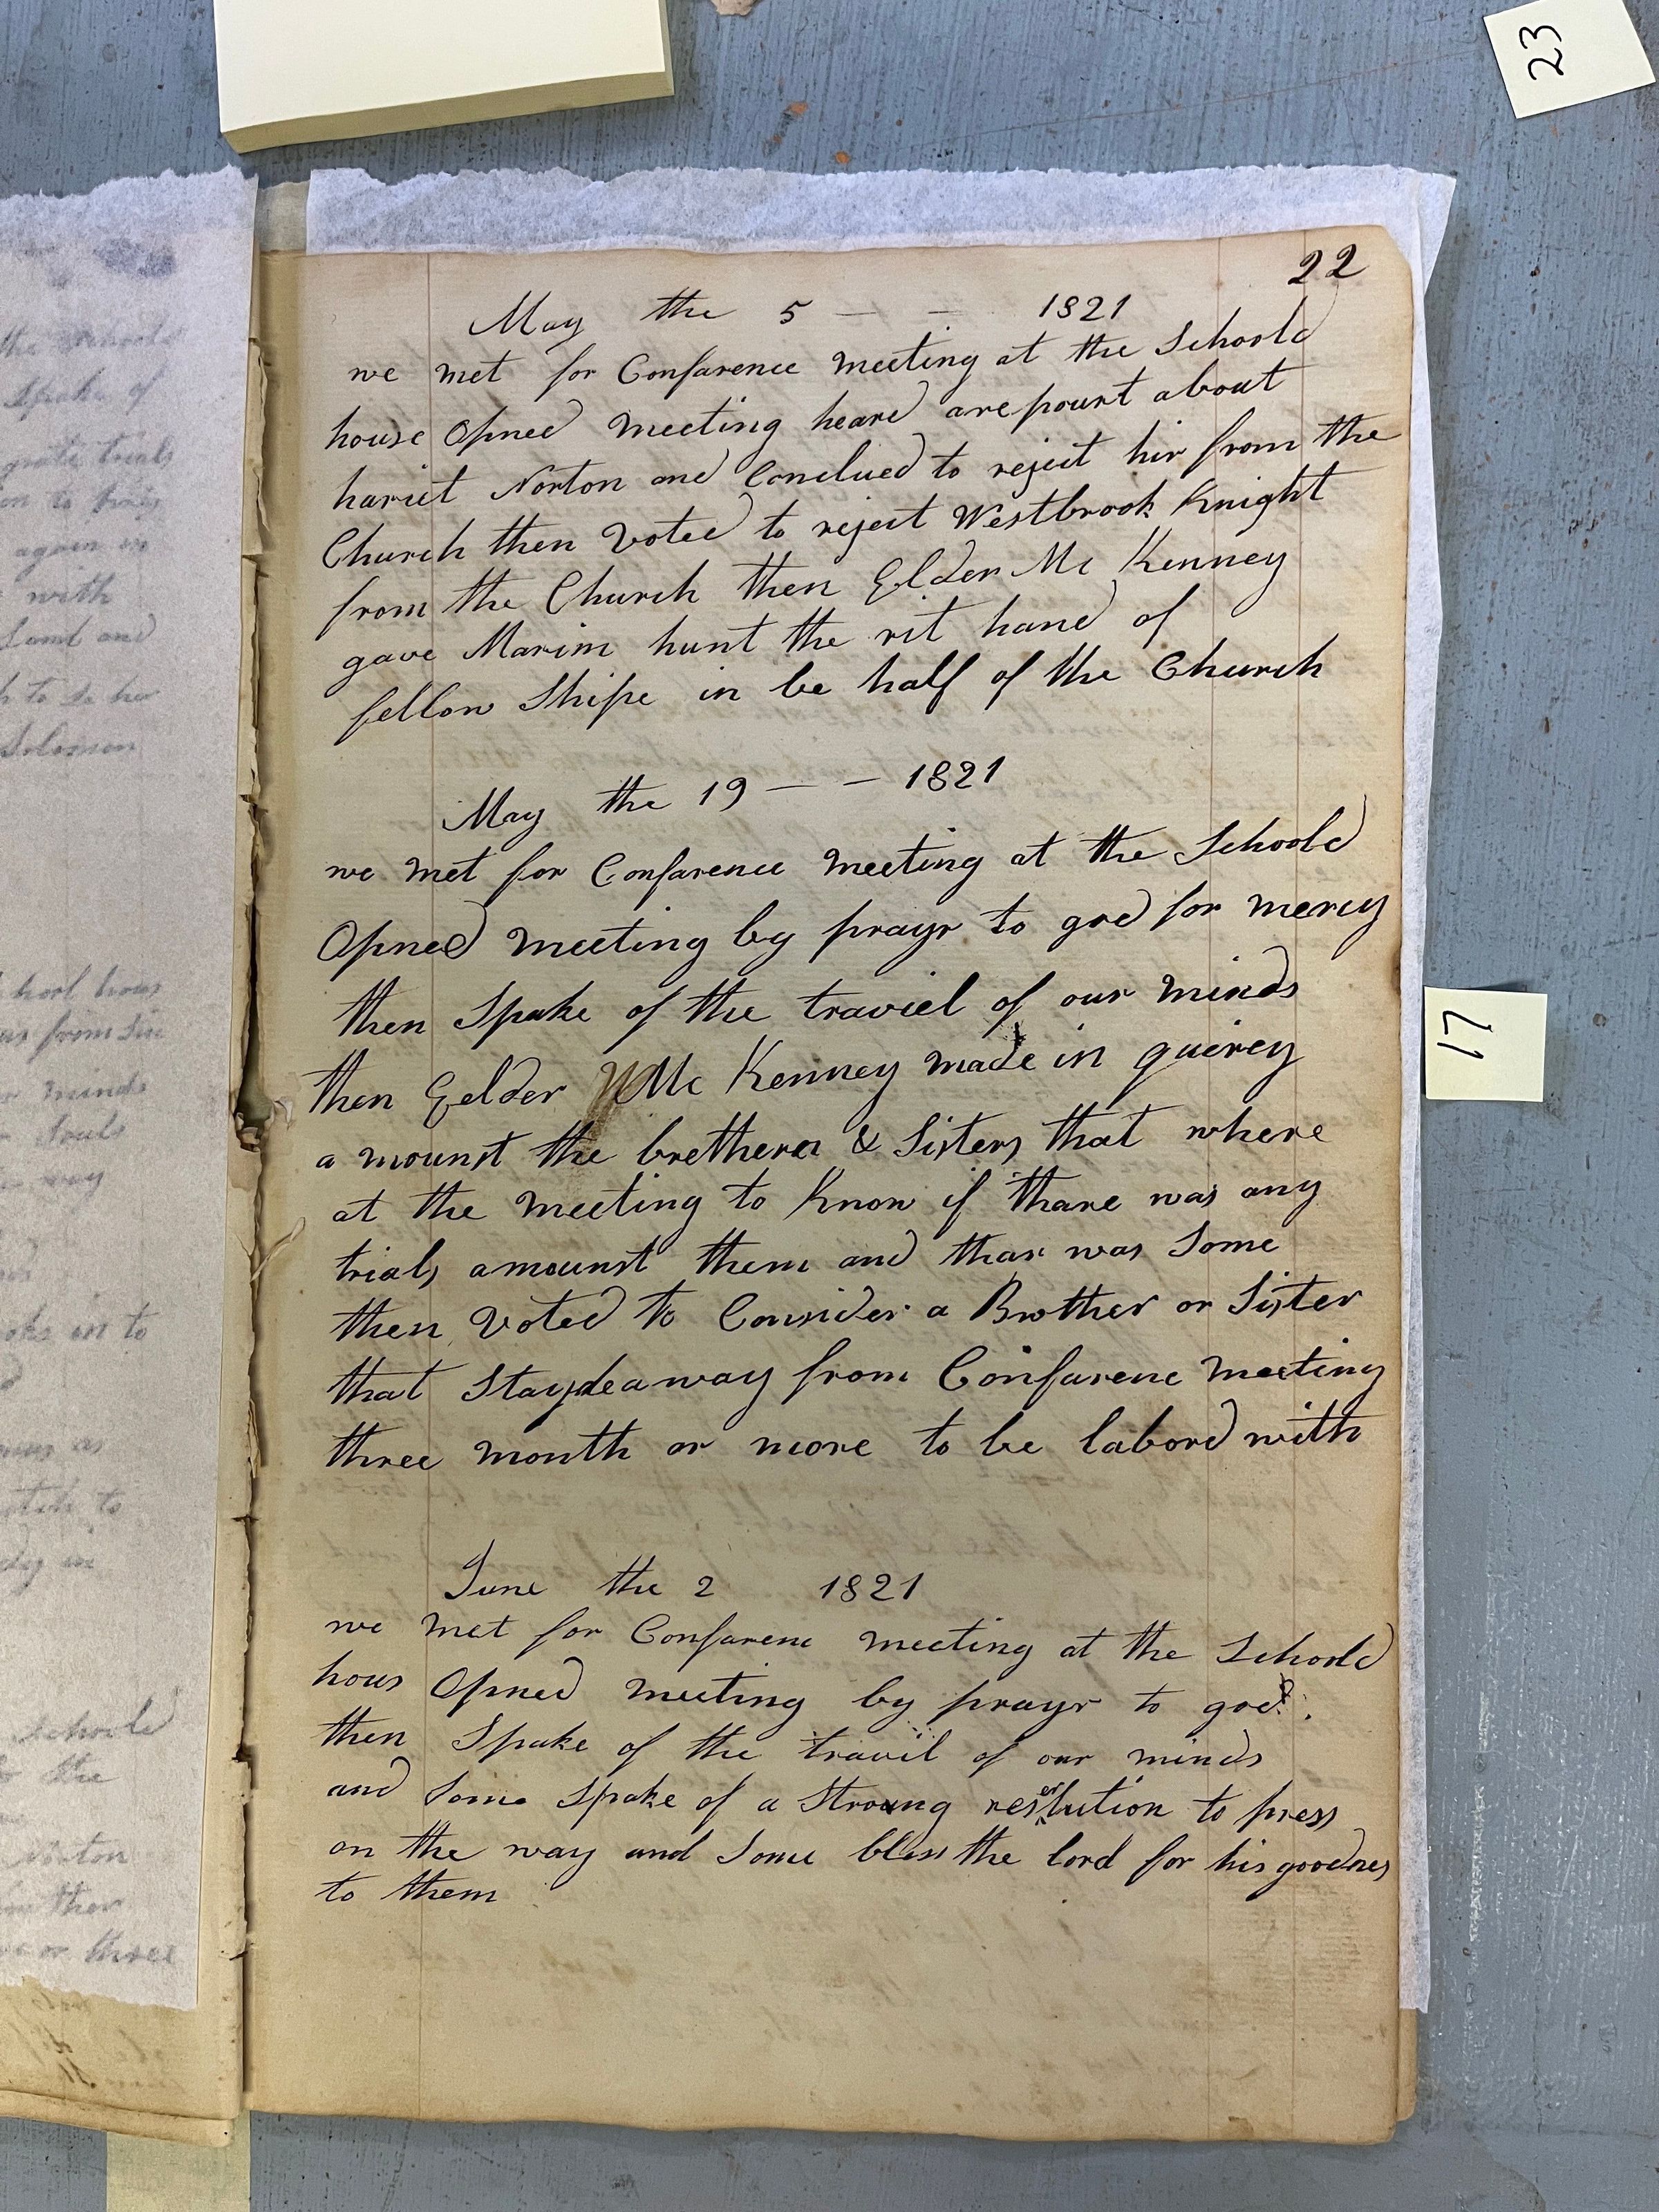 23
22
May the 5 — — 1821
we met for Confarence meeting at the Schoole
house Opned meeting heard arepourt about
hariet Norton and Conclued to reject hir from the
Church then voted to reject Westbrook Knight
from the Church then Elder Mc Kenney
gave Marim hunt the rit hand of
fellow Shipe in be half of the Church
May the 19 — — 1821
we met for Confarence meeting at the Schoole
Opned meeting by prayr to god for mercy
then Spake of the traviel of our minds
then Eelder Mc Kenney made in quirey
a mounst the brethern & Sisters that where
at the meeting to know if thare was any
trials amounst them and thar was Some
then voted to Consider a Brother or Sister
that Stayde away from Confarenc meeting
three month or more to be labord with
17
June the 2 1821
we met for Confarenc meeting at the Schoole
hous Opned meeting by prayr to god.
then Spake of the travil of our minds
and Some Spake of a Stroung resolution to press
on the way and Some bless the lord for his goodnes
to them
the Schoole
Spake of
grate trials
on to pray
again in
with
Land and
h to se her
Solomon
hool hous
us from Sin
minds
Souls
way
oke in to
as
to
in
Schoole
the
Norton
ther
or three